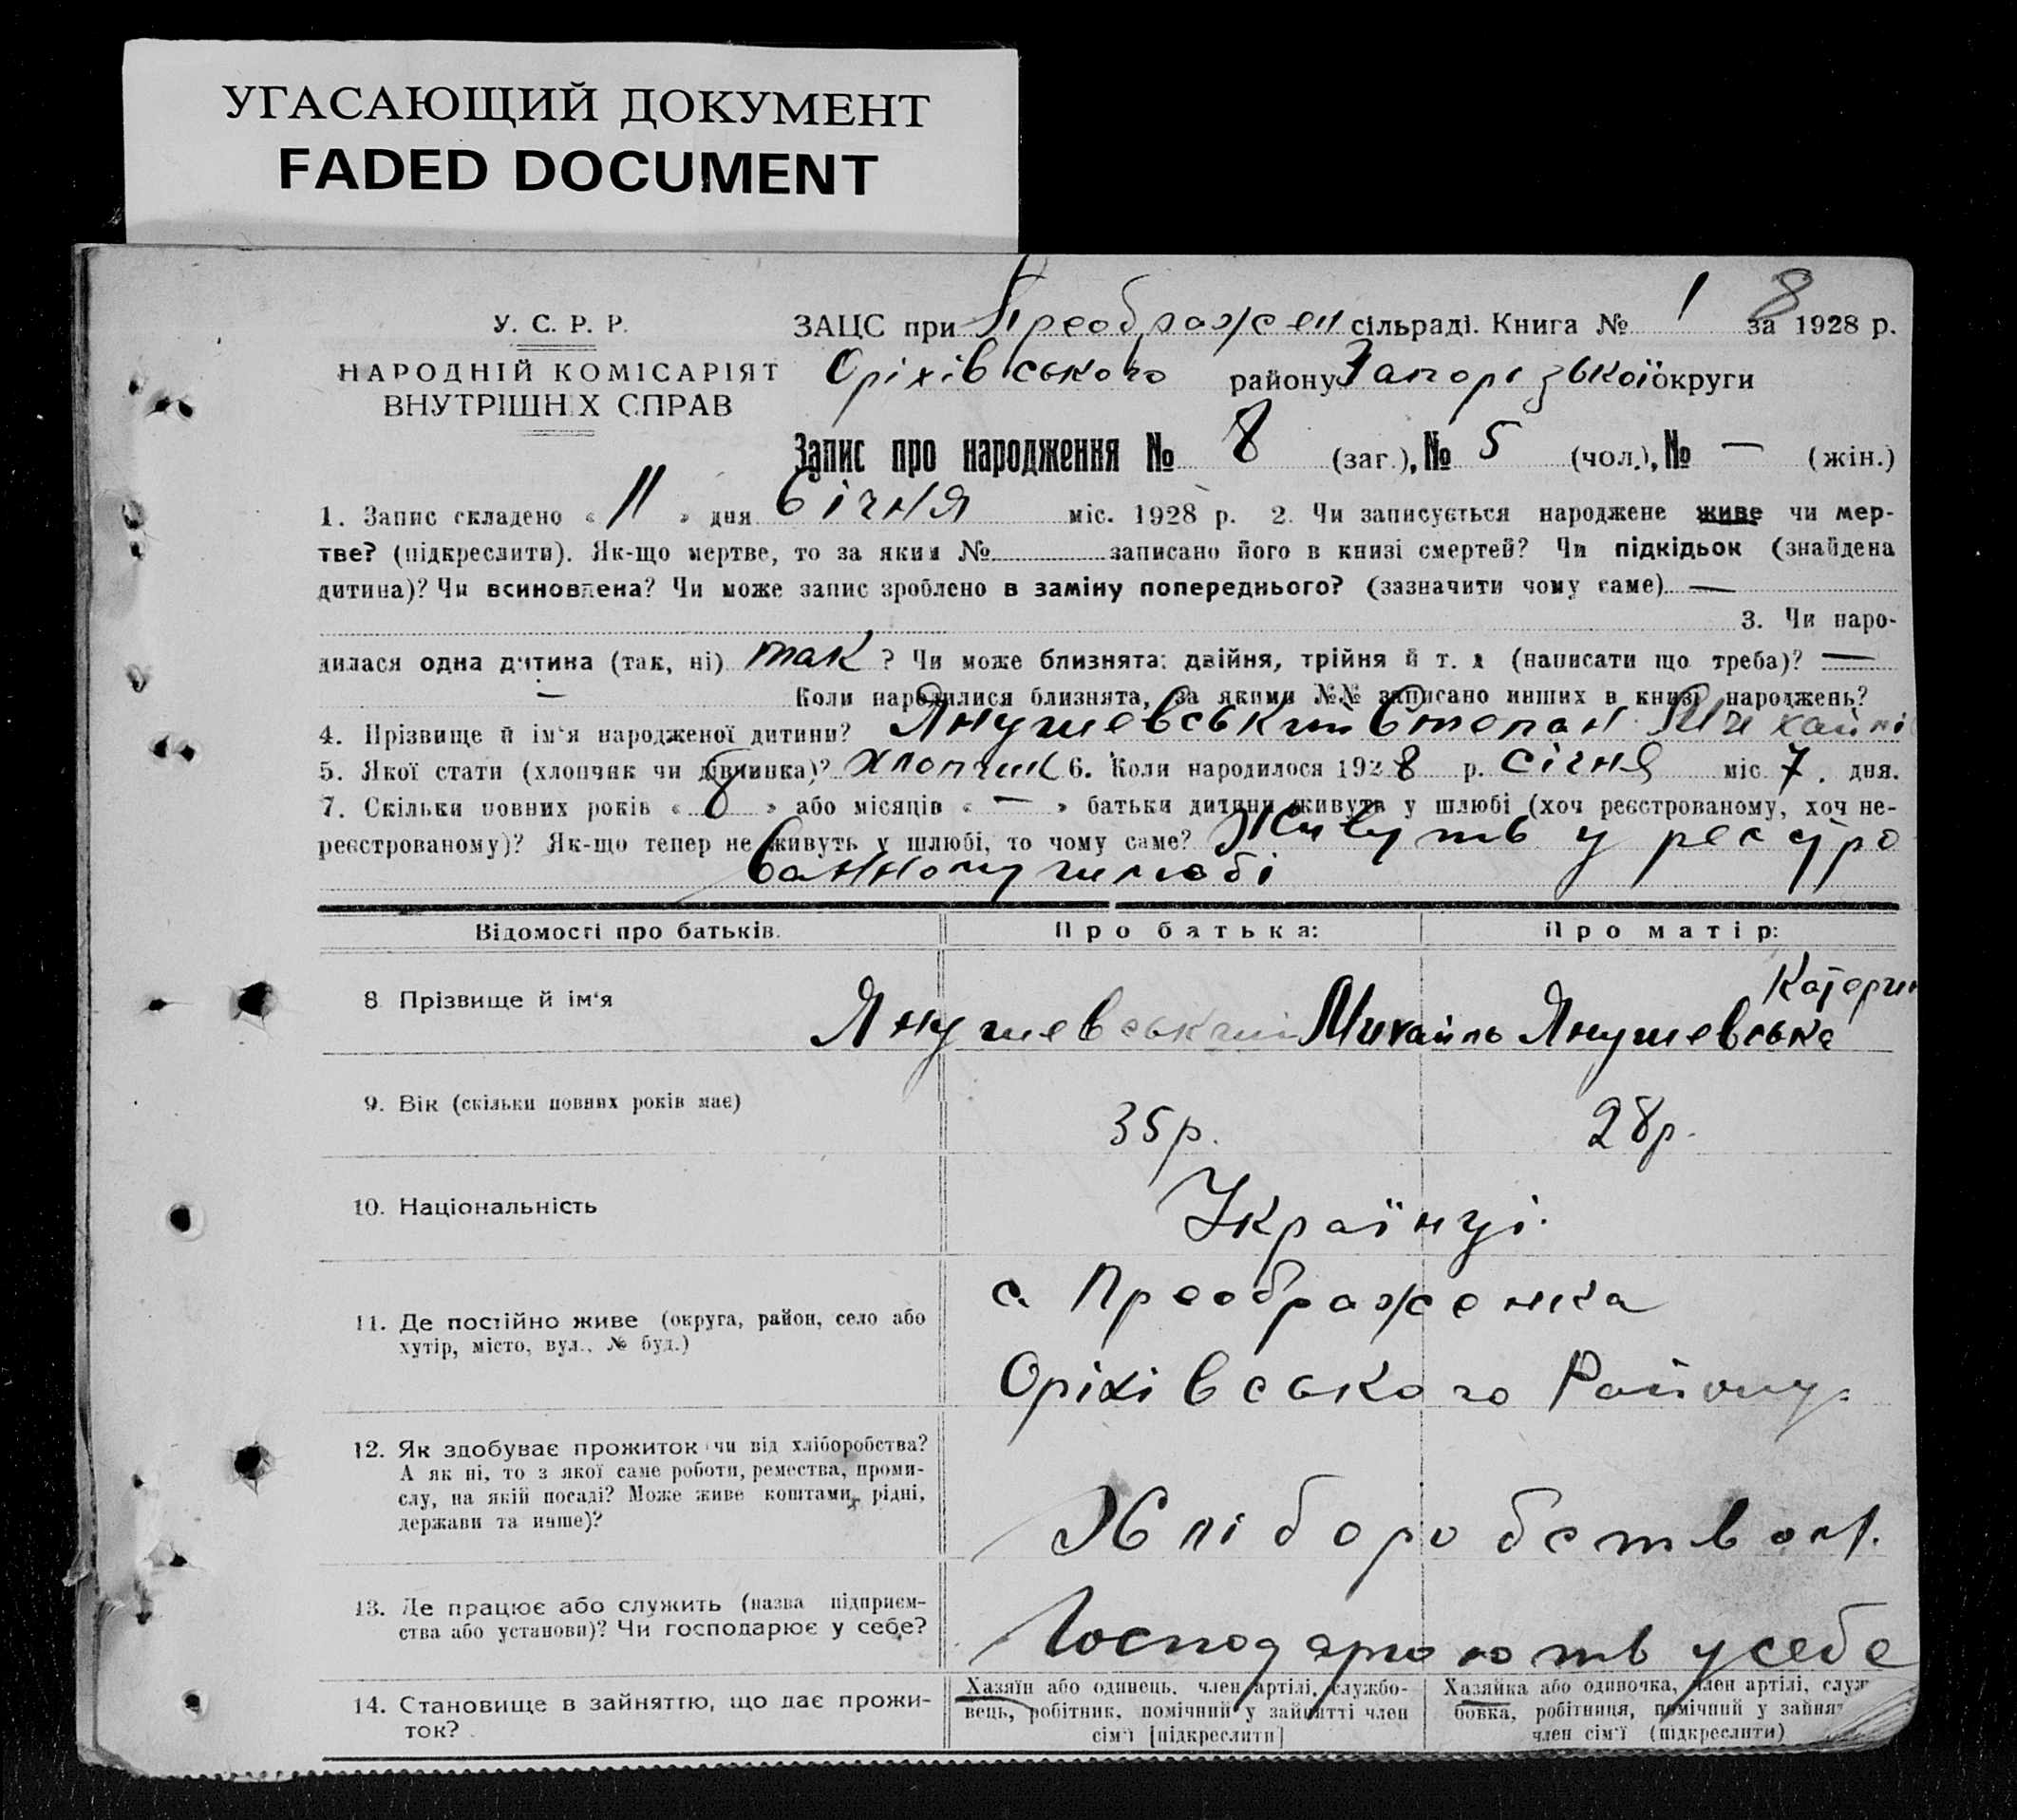 УГАСАЮЩИЙ ДОКУМЕНТ
FADED DOCUMENT
У. С. Р. Р.
НАРОДНІЙ КОМІСАРІЯТ
ВНУТРІШНІХ СПРАВ
ЗАЦС при Преображен сільраді. Книга № 1 за 1928 р.
8
Оріхівського району Запорізької округи
Запис про народження № 8 (заг.), № 5 (чол.), № — (жін.)
1. Запис складено « 11 » дня Січня міс. 1928 р. 2. Чи записується народжене живе чи мер-
тве? (підкреслити). Як-що мертве, то за яким № записано його в книзі смертей? Чи підкідьок (знайдена
дитина)? Чи всиновлена? Чи може запис зроблено в заміну попереднього? (зазначити чому саме) —
3. Чи наро-
дилася одна дитина (так, ні) так ? Чи може близнята: двійня, трійня й т. д (написати що треба)? —
— Коли народилися близнята, за якими №№ записано инших в книзі народжень?
4. Прізвище й ім'я народженої дитини? Янушевський Степан Михайлі
5. Якої стати (хлопчик чи дівчинка)? Хлопчик 6. Коли народилося 1928 р. Січня міс. 7. дня.
7. Скільки повних років « 8 » або місяців « — » батьки дитини живуть у шлюбі (хоч реєстрованому, хоч не-
реєстрованому)? Як-що тепер не живуть у шлюбі, то чому саме? Живуть у реєстро
ванному шлюбі
Відомості про батьків. Про батька: Про матір:
8 Прізвище й ім'я Янушевський Михайло Янушевська Катерин
9. Вік (скільки повних років має) 35р. 28р.
10. Національність Українці.
11. Де постійно живе (округа, район, село або
хутір, місто, вул., № буд.)
с. Преображенка
Оріхівського Району.
12. Як здобуває прожиток чи від хліборобства?
А як ні, то з якої саме роботи, ремества, проми-
слу, на якій посаді? Може живе коштами, рідні,
держави та инше)?
Хліборобством.
13. Де працює або служить (назва підприєм-
ства або установи)? Чи господарює у себе?
Господарюють у себе
14. Становище в зайняттю, що дає прожи-
ток?
Хазяїн або одинець, член артілі, службо-
вець, робітник, помічний у зайнятті член
сім'ї [підкреслити]
Хазяйка або одиночка, член артілі, служ
бовка, робітниця, помічний у зайнят
член сім'ї (підкреслити)